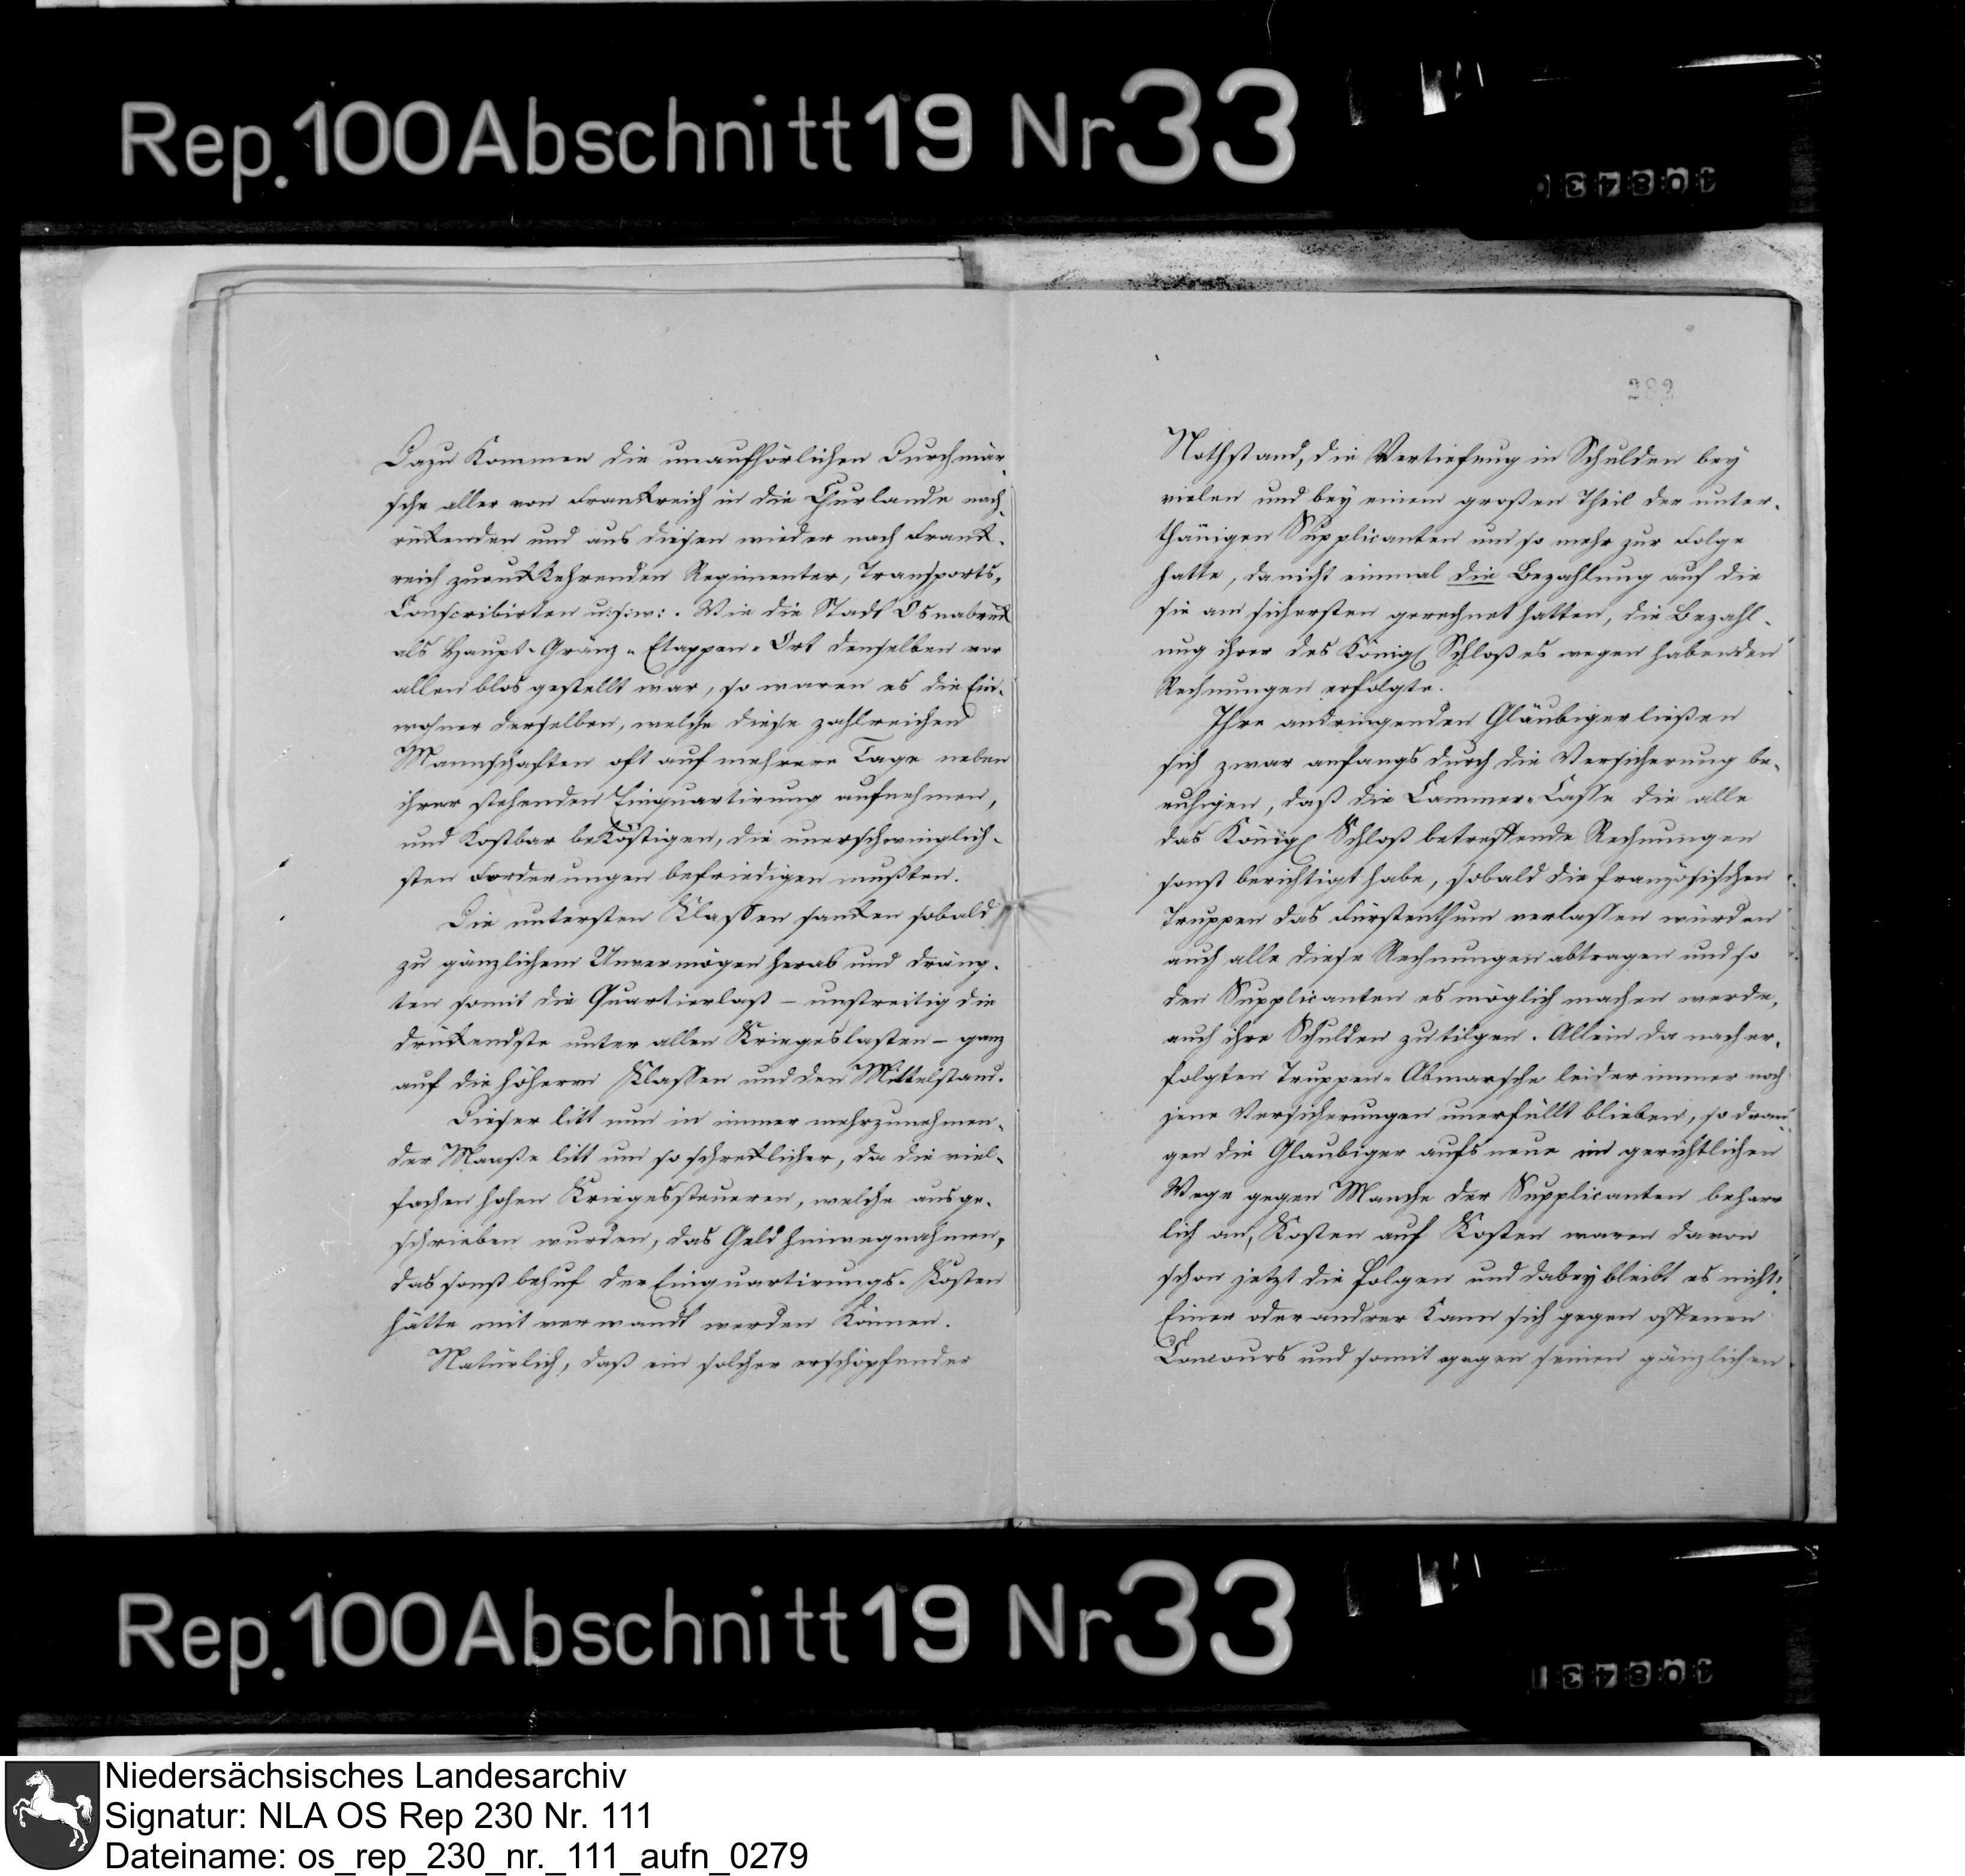 Rep. 100 Abschnitt 19 Nr 33
Dazu kommen die unaufhörlichen Durchmär-
sche aller von Frankreich in die Churlande nach-
rükenden und aus diesen wieder nach Frank-
reich zurükkehrenden Regimenter, Transports,
Conscribirten u:s:w:. Wie die Stadt Osnabrük
als Haupt-Gränz-Etappen-Ort denselben vor
allen blos gestellt war, so waren es die Ein-
wohner derselben, welche diese zahlreichen
Mannschaften oft auf mehrere Tage neben
ihrer stehenden Einquartirung aufnehmen,
und kostbar beköstigen, die unerschwinglich-
sten Forderungen befriedigen mußten.
Die untersten Klassen sanken sobald
zu gänzlichem Unvermögen herab und dräng-
ten somit die Quartierlast – unstreitig die
drükendste unter allen Kriegeslasten – ganz
auf die höhern Klassen und den Mittelstand.
Dieser litt nun in immer mehrzunehmen-
der Maaße litt um so schreklicher, da die viel-
fachen hohen Kriegessteueren, welche ausge-
schrieben wurden, das Geld hinwegnahmen,
das sonst behuf der Einquartirungs-Kosten
hätte mit verwandt werden können.
Natürlich, daß ein solcher erschöpfender
282
Nothstand, die Vertiefung in Schulden bey
vielen und bey einem großen Theil der unter-
thänigen Supplicanten um so mehr zur Folge
hatte, da nicht einmal die Bezahlung auf die
sie am sichersten gerechnet hatten, die Bezahl-
ung ihrer des Königl Schloßes wegen habenden
Rechnungen erfolgte.
Ihre andringenden Gläubiger ließen
sich zwar anfangs durch die Versicherung be-
ruhigen, daß die Cammer-Casse die alle
das Königl Schloß betreffende Rechnungen
sonst berichtigt habe, sobald die französischen
Truppen das Fürstenthum verlassen würden
auch alle diese Rechnungen abtragen und so
den Supplicanten es möglich machen werde,
auch ihre Schulden zu tilgen. Allein da nach er-
folgten Truppen-Abmarsche leider immer noch
jene Versicherungen unerfüllt blieben, so dran-
gen die Glaubiger aufs neue im gerichtlichen
Wege gegen Manche der Supplicanten beharr
lich an, Kosten auf Kosten waren davon
schon jetzt die Folgen und dabey bleibt es nicht.
Einer oder andrer kann sich gegen offenen
Concours und somit gegen seinen gänzlichen
Rep. 100 Abschnitt 19 Nr 33
Niedersächsisches Landesarchiv
Signatur: NLA OS Rep 230 Nr. 111
Dateiname: os_rep_230_nr._111_aufn_0279